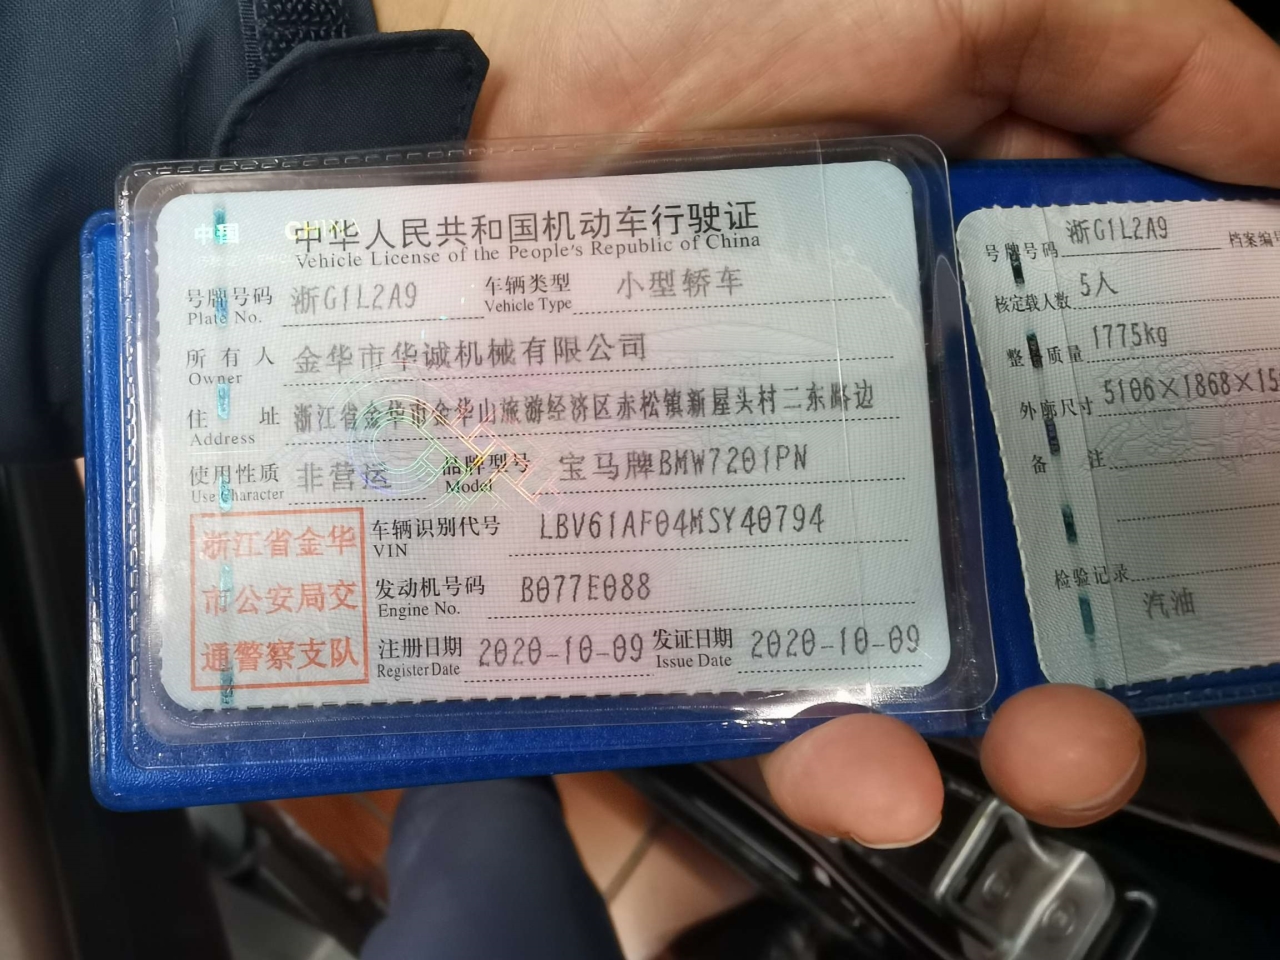 中国 CHINA
中华人民共和国机动车行驶证
Vehicle License of the People's Republic of China
号牌号码 浙G1L2A9 车辆类型 小型轿车
Plate No. Vehicle Type
所有人 金华市华诚机械有限公司
Owner
住址 浙江省金华市金华山旅游经济区赤松镇新屋头村二东路边
Address
使用性质 非营运 品牌型号 宝马牌BMW7201PN
Use Character Model
浙江省金华
市公安局交
通警察支队
车辆识别代号 LBV61AF04MSY40794
VIN
发动机号码 B077E088
Engine No.
注册日期 2020-10-09 发证日期 2020-10-09
Register Date Issue Date
号牌号码 浙G1L2A9 档案编号
核定载人数 5人
整备质量 1775kg
外廓尺寸 5106×1868×15
备注
检验记录
汽油